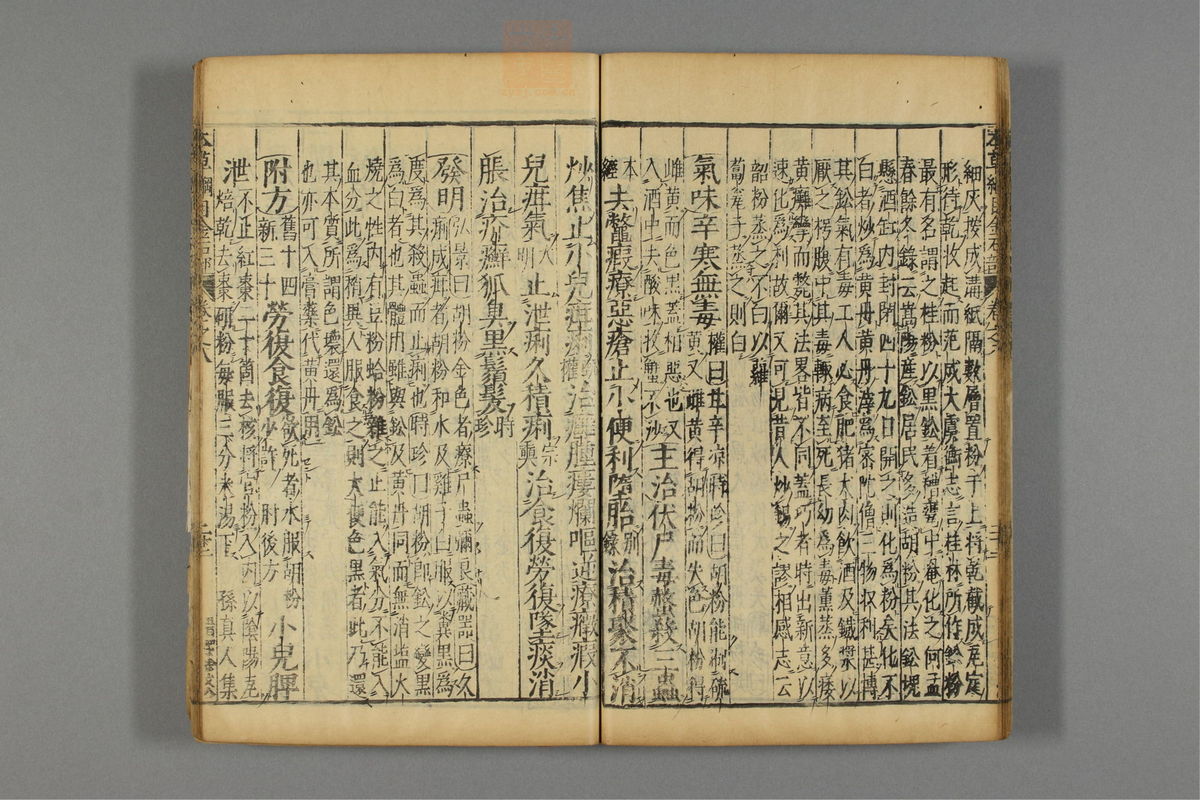 細灰按成溝紙隔數層置粉于上將乾截成瓦定
形待乾收起而范成大虞衡志言桂林所作鉛粉
最有名謂之桂粉以黑鉛着糟甕中罨化之何孟
春餘冬錄云嵩陽產鉛居民多造胡粉其法鉛塊
懸酒缸內封閉四十九日開之則化為粉矣化不
白者炒為黃丹黃丹滓為密陀僧三物收利甚博
其鉛氣有毒工人必食肥猪犬肉飲酒及鐵漿以
厭之枵腹中其毒輒病至死長幼為毒薰蒸多痿
黃癱攣而斃其法畧皆不同蓋巧者時出新意以
速化為利故爾又可見昔人炒錫之謬相感志云
韶粉蒸之不白以蘿
蔔甕子蒸之則白
氣味辛寒無毒權曰甘辛凉時珍曰胡粉能制硫
黃又雌黃得胡粉而失色胡粉得
雌黃而色黑蓋相惡也又
入酒中去酸味收蟹不沙主治伏尸毒螫殺三蟲
本經去鱉瘕療惡瘡止小便利墮胎別錄治積聚不消
炒焦止小兒疳痢甄權治癰腫瘻爛嘔逆療癥瘕小
兒疳氣大明止泄痢久積痢宗奭治食復勞復墜痰消
脹治疥癬狐臭黑鬚髮時珍
發明弘景曰胡粉金色者療尸蟲彌良藏器曰久
痢成疳者胡粉和水及雞子白服以糞黑為
度為其殺蟲而止痢也時珍曰胡粉即鉛之變黑
為白者也其體用雖與鉛及黃丹同而無消盬火
燒之性內有豆粉蛤粉雜之止能入氣分不能入
血分此為稍異人服食之則大便色黑者此乃還
其本質所謂色壞還為鉛
也亦可入膏藥代黃丹用
附方舊十四新三十勞復食復欲死者水服胡粉少許 肘後方小兒脾
泄不止紅棗二十箇去核將官粉入內以陰陽瓦
焙乾去棗研粉每服三分米湯下 孫真人集
本草綱目金石部
卷之八